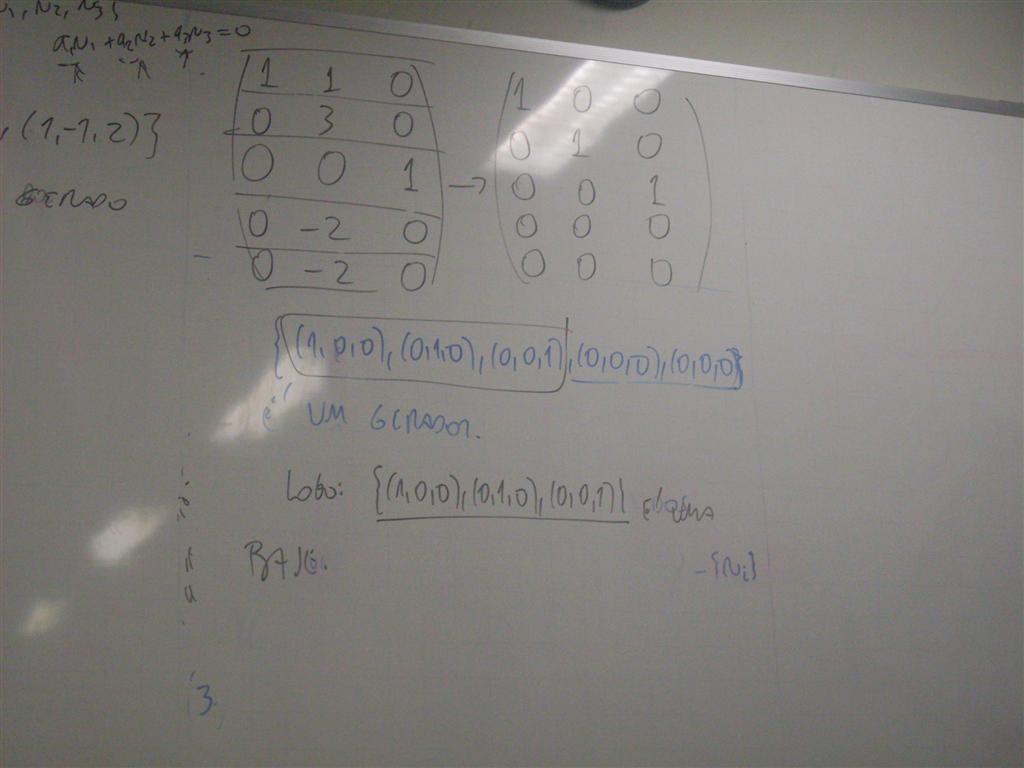 a₁v₁ + a₂v₂ + a₃v₃ = 0
, (1,-1,2)}
GERADO
1 1 0
0 3 0
0 0 1
0 -2 0
0 -2 0
→
1 0 0
0 1 0
0 0 1
0 0 0
0 0 0
{(1,0,0),(0,1,0),(0,0,1),(0,0,0),(0,0,0)}
é UM GERADOR.
LOGO: {(1,0,0),(0,1,0),(0,0,1)} É UMA
BASE.
-{vᵢ}
3